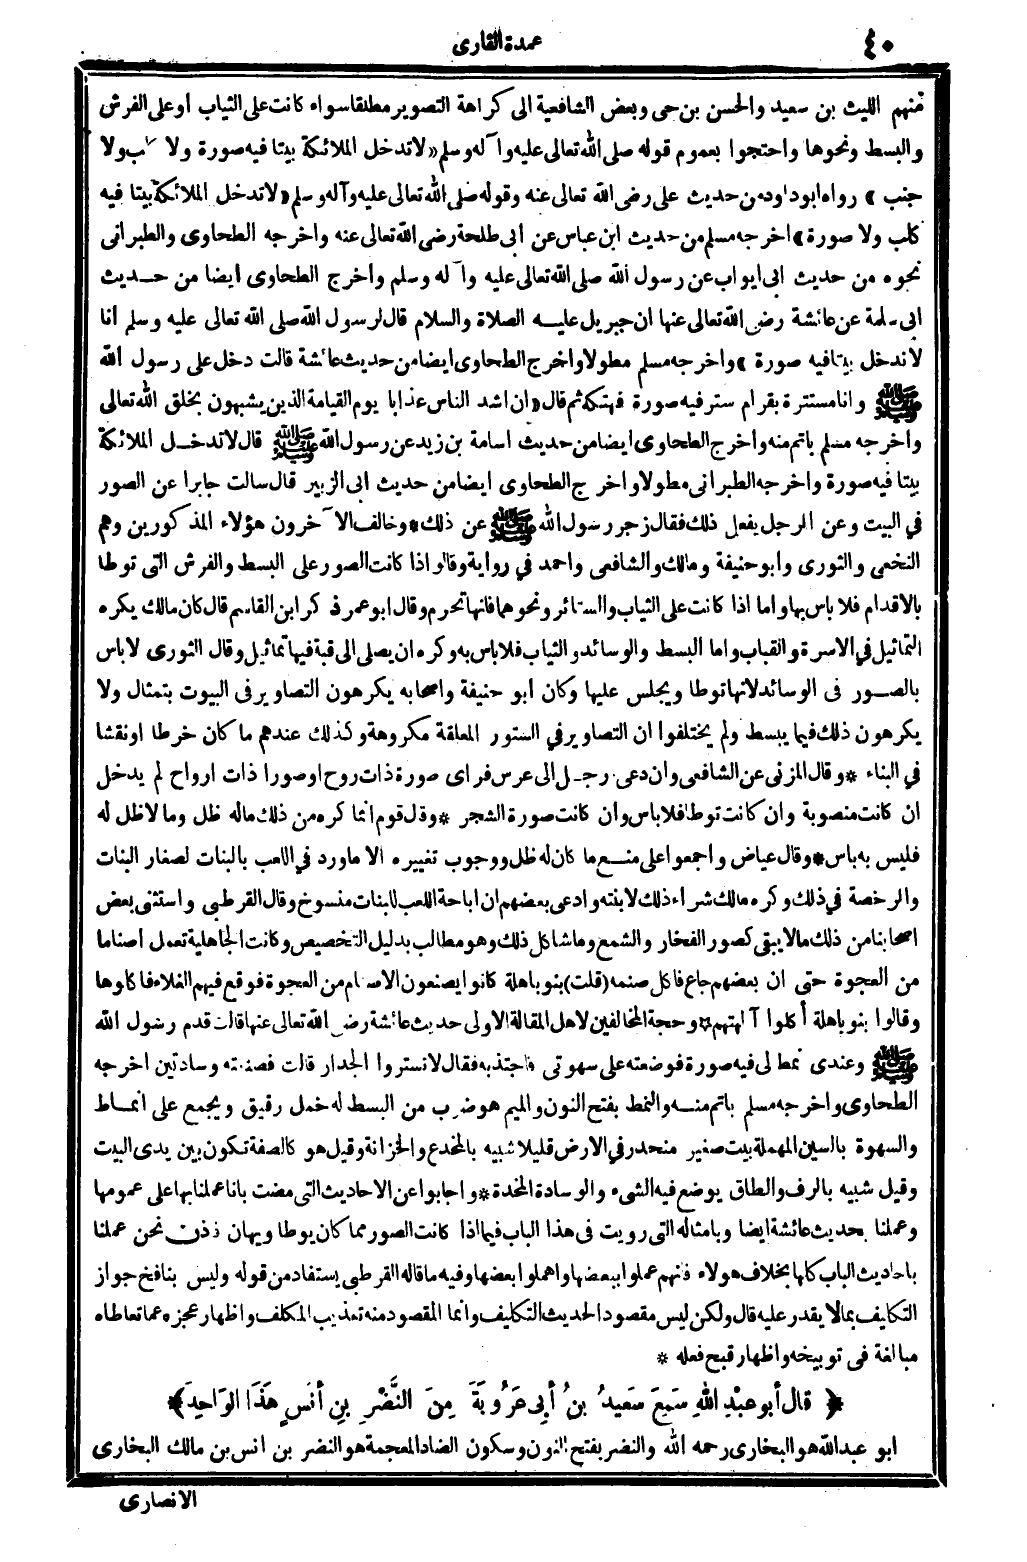 ٤٠
عمدة القارى
منهم الليث بن سعيد والحسن بن حى وبعض الشافعية الى كراهة التصوير مطلقا سواء كانت على الثياب أو على الفرش
والبسط ونحوها واحتجوا بعموم قوله صلى الله تعالى عليه وآله وسلم «لاتدخل الملائكة بيتا فيه صورة ولا كلب ولا
جنب » رواه ابوداود من حديث على رضى الله تعالى عنه وقوله صلى الله تعالى عليه وآله وسلم «لاتدخل الملائكة بيتا فيه
كلب ولا صورة» اخرجه مسلم من حديث ابن عباس عن ابى طلحة رضى الله تعالى عنه واخرجه الطحاوى والطبرانى
نحوه من حديث ابى ايواب عن رسول الله صلى الله تعالى عليه وآله وسلم واخرج الطحاوى ايضا من حديث
ابى سلمة عن عائشة رضى الله تعالى عنها ان جبريل عليه الصلاة والسلام قال لرسول الله صلى الله تعالى عليه وسلم أنا
لاندخل بيتا فيه صورة » واخرجه مسلم مطولا واخرج الطحاوى ايضا من حديث عائشة قالت دخل على رسول الله
ﷺ وانا مستترة بقرام ستر فيه صورة فهتكه ثم قال «ان اشد الناس عذابا يوم القيامة الذين يشبهون بخلق الله تعالى
واخرجه مسلم باتم منه واخرج الطحاوى ايضا من حديث اسامة بن زيد عن رسول الله ﷺ قال لاتدخل الملائكة
بيتا فيه صورة واخرجه الطبرانى مطولا واخرج الطحاوى ايضا من حديث ابى الزبير قال سالت جابرا عن الصور
في البيت وعن الرجل يفعل ذلك فقال زجر رسول الله ﷺ عن ذلك * وخالف الآخرون هؤلاء المذكورين وهم
النخعى والثورى وأبو حنيفة ومالك والشافعى واحمد في رواية وقالوا اذا كانت الصور على البسط والفرش التى توطا
بالاقدام فلا باس بها واما اذا كانت على الثياب والستائر ونحوهما فانها تحرم وقال ابو عمر ذكر ابن القاسم قال كان مالك يكره
التماثيل في الاسرة والقباب واما البسط والوسائد والثياب فلا باس به وكره ان يصلى الى قبة فيها تماثيل وقال الثورى لاباس
بالصور فى الوسائد لانها توطا ويجلس عليها وكان أبو حنيفة واصحابه يكرهون التصاوير فى البيوت بتمثال ولا
يكرهون ذلك فيما يبسط ولم يختلفوا ان التصاوير في الستور المعلقة مكروهة وكذلك عندهم ما كان خرطا او نقشا
في البناء * وقال المزنى عن الشافعى وان دعى رجل الى عرس فراى صورة ذات روح او صورا ذات ارواح لم يدخل
ان كانت منصوبة وان كانت توطا فلا باس وان كانت صورة الشجر * وقال قوم انما كره من ذلك ماله ظل وما لاظل له
فليس به باس * وقال عياض واجمعوا على منع ما كان له ظل ووجوب تغييره الا ماورد في اللعب بالبنات لصغار البنات
والرخصة في ذلك وكره مالك شراء ذلك لابنته وادعى بعضهم ان اباحة اللعب للبنات منسوخ وقال القرطبى واستثنى بعض
اصحابنا من ذلك مالا يبقى كصور الفخار والشمع وما شاكل ذلك وهو مطالب بدليل التخصيص وكانت الجاهلية تعمل أصناما
من العجوة حتى ان بعضهم جاع فا كل صنمه (قلت) بنو باهلة كانوا يصنعون الاصنام من العجوة فوقع فيهم الغلاء فا كلوها
وقالوا بنو باهلة أكلوا آلهتهم * وحجة المخالفين لاهل المقالة الاولى حديث عائشة رضى الله تعالى عنها قالت قدم رسول الله
ﷺ وعندى نمط لى فيه صورة فوضعته على سهوتى فاجتذبه فقال لاتستروا الجدار قالت فصنعته وسادتين اخرجه
الطحاوى واخرجه مسلم باتم منه والنمط بفتح النون والميم هو ضرب من البسط له خمل رقيق ويجمع على انماط
والسهوة بالسين المهملة بيت صغير منحدر في الارض قليلا شبيه بالمخدع والخزانة وقيل هو كالصفة تكون بين يدى البيت
وقيل شبيه بالرف والطاق يوضع فيه الشىء والوسادة المخدة * واجابوا عن الاحاديث التى مضت بانا عملنا بها على عمومها
وعملنا بحديث عائشة ايضا وبامثاله التى رويت فى هذا الباب فيما اذا كانت الصور مما كان يوطا ويهان فاذن نحن عملنا
باحاديث الباب كلها بخلاف هولاء فانهم عملوا ببعضها واهملوا بعضها وفيه ما قاله القرطبى يستفاد من قوله وليس بنافخ جواز
التكليف بمالا يقدر عليه قال ولكن ليس مقصود الحديث التكليف وانما المقصود منه تعذيب المكلف واظهار عجزه عما تعاطاه
مبالغة فى توبيخه واظهار قبح فعله *
﴿ قال أبو عبْدِ اللهِ سَمِعَ سَعِيدُ بنُ أبى عَرُوبَةَ مِنَ النَّضْرِ بنِ أنَسٍ هَذَا الوَاحِدَ ﴾
ابو عبدالله هو البخارى رحمه الله والنضر بفتح النون وسكون الضاد المعجمة هو النضر بن انس بن مالك البخارى
الانصارى